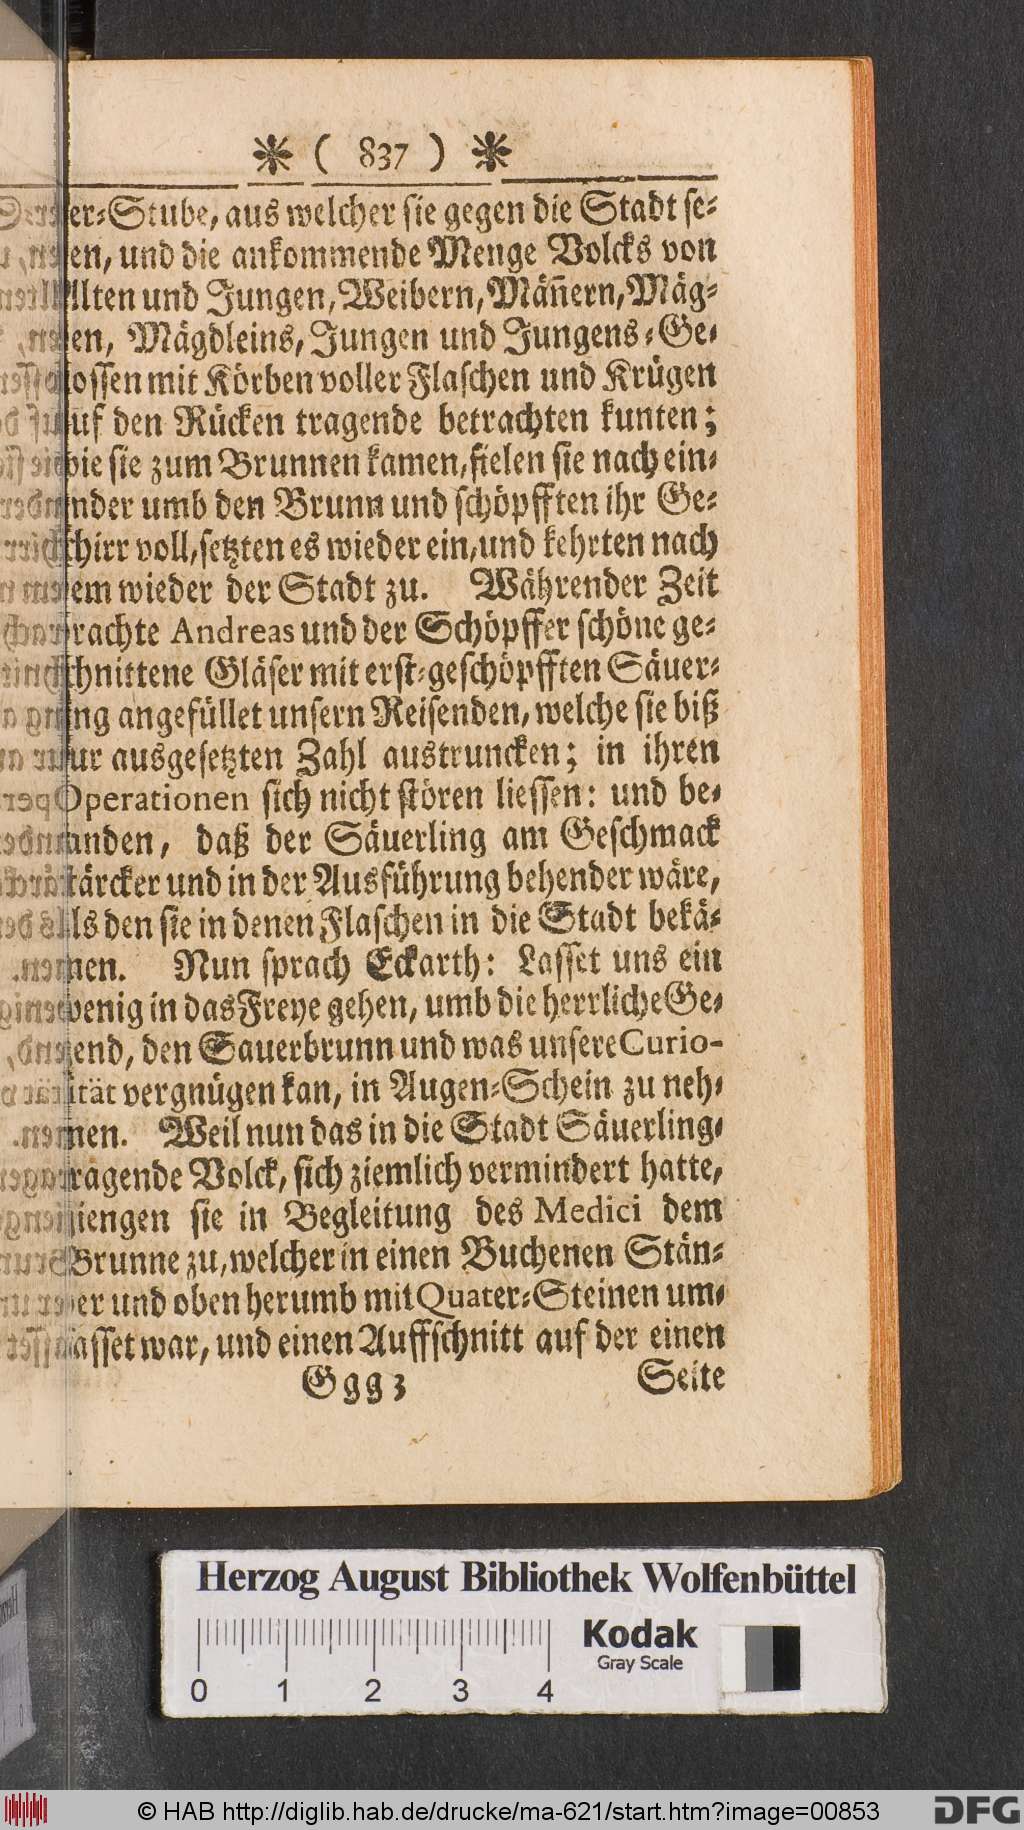 ❋ ( 837 ) ❋
er-Stube, aus welcher sie gegen die Stadt se-
en, und die ankommende Menge Volcks von
Alten und Jungen, Weibern, Mäñern, Mäg-
en, Mägdleins, Jungen und Jungens-Ge-
ossen mit Körben voller Flaschen und Krügen
uf den Rücken tragende betrachten kunten;
wie sie zum Brunnen kamen, fielen sie nach ein-
nder umb den Brunn und schöpfften ihr Ge-
chirr voll, setzten es wieder ein, und kehrten nach
em wieder der Stadt zu. Währender Zeit
rachte Andreas und der Schöpffer schöne ge-
chnittene Gläser mit erst-geschöpfften Säuer-
ing angefüllet unsern Reisenden, welche sie biß
ur ausgesetzten Zahl austruncken; in ihren
Operationen sich nicht stören liessen: und be-
anden, daß der Säuerling am Geschmack
tärcker und in der Ausführung behender wäre,
als den sie in denen Flaschen in die Stadt bekä-
men. Nun sprach Eckarth: Lasset uns ein
wenig in das Freye gehen, umb die herrliche Ge-
end, den Sauerbrunn und was unsere Curio-
ität vergnügen kan, in Augen-Schein zu neh-
men. Weil nun das in die Stadt Säuerling-
tragende Volck, sich ziemlich vermindert hatte,
giengen sie in Begleitung des Medici dem
Brunne zu, welcher in einen Buchenen Stän-
er und oben herumb mit Quater-Steinen um-
asset war, und einen Auffschnitt auf der einen
Ggg 3 Seite
Herzog August Bibliothek Wolfenbüttel
Kodak
Gray Scale
0 1 2 3 4
© HAB http://diglib.hab.de/drucke/ma-621/start.htm?image=00853
DFG